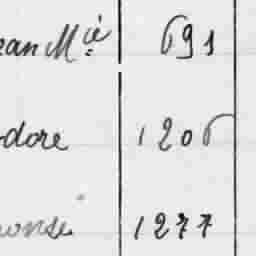 ean M^ie 691
dore 1206
onse 1277